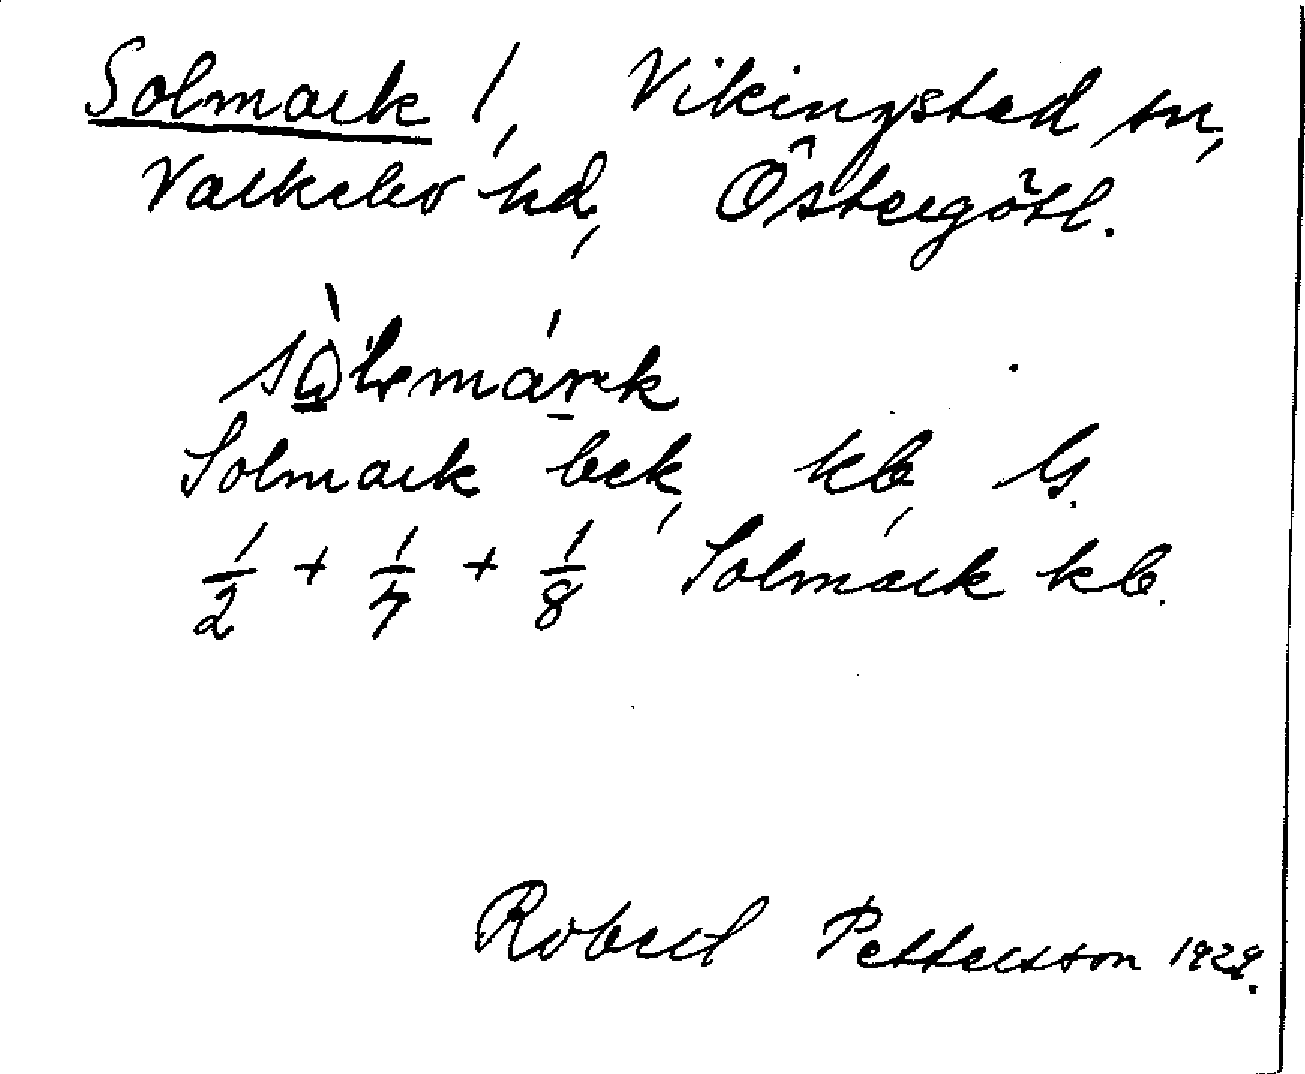 Solmark 1, Vikingstad sn,
Valkebo hd, Östergötl.
Solmark bek, kb, G.
1/2 + 1/7 + 1/8 Solmark kb.
Robert Pettersson 1929.